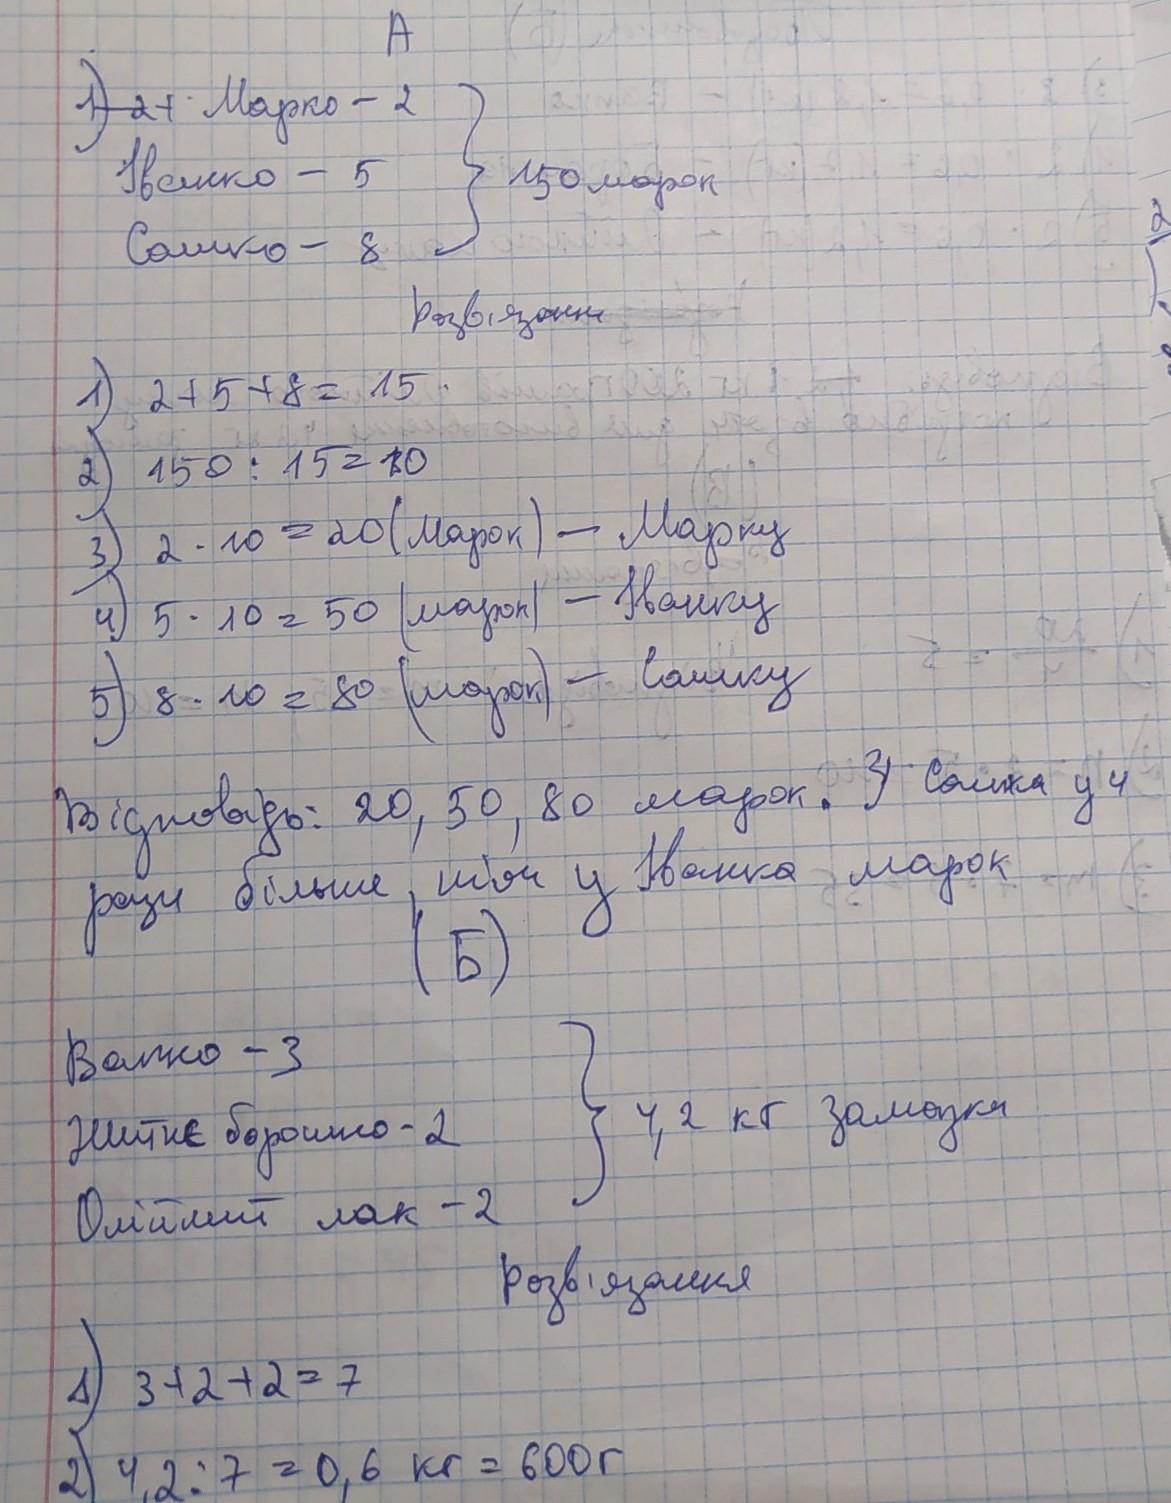 А
1) 2+ Марко - 2
Іванко - 5
Сашко - 8
150 марок
Розв'язання
1) 2+5+8= 15
2) 150 : 15=10
3) 2 · 10 = 20 (Марок) - Марку
4) 5 · 10 = 50 (марок) - Іванку
5) 8 · 10 = 80 (марок) - Сашку
Відповідь: 20, 50, 80 марок. У Сашка у 4
рази більше, ніж у Іванка марок
(Б)
Вапно - 3
Житнє борошно - 2
Олійний лак - 2
4,2 кг замазки
Розв'язання
1) 3+2+2=7
2) 4,2:7=0,6 кг = 600г